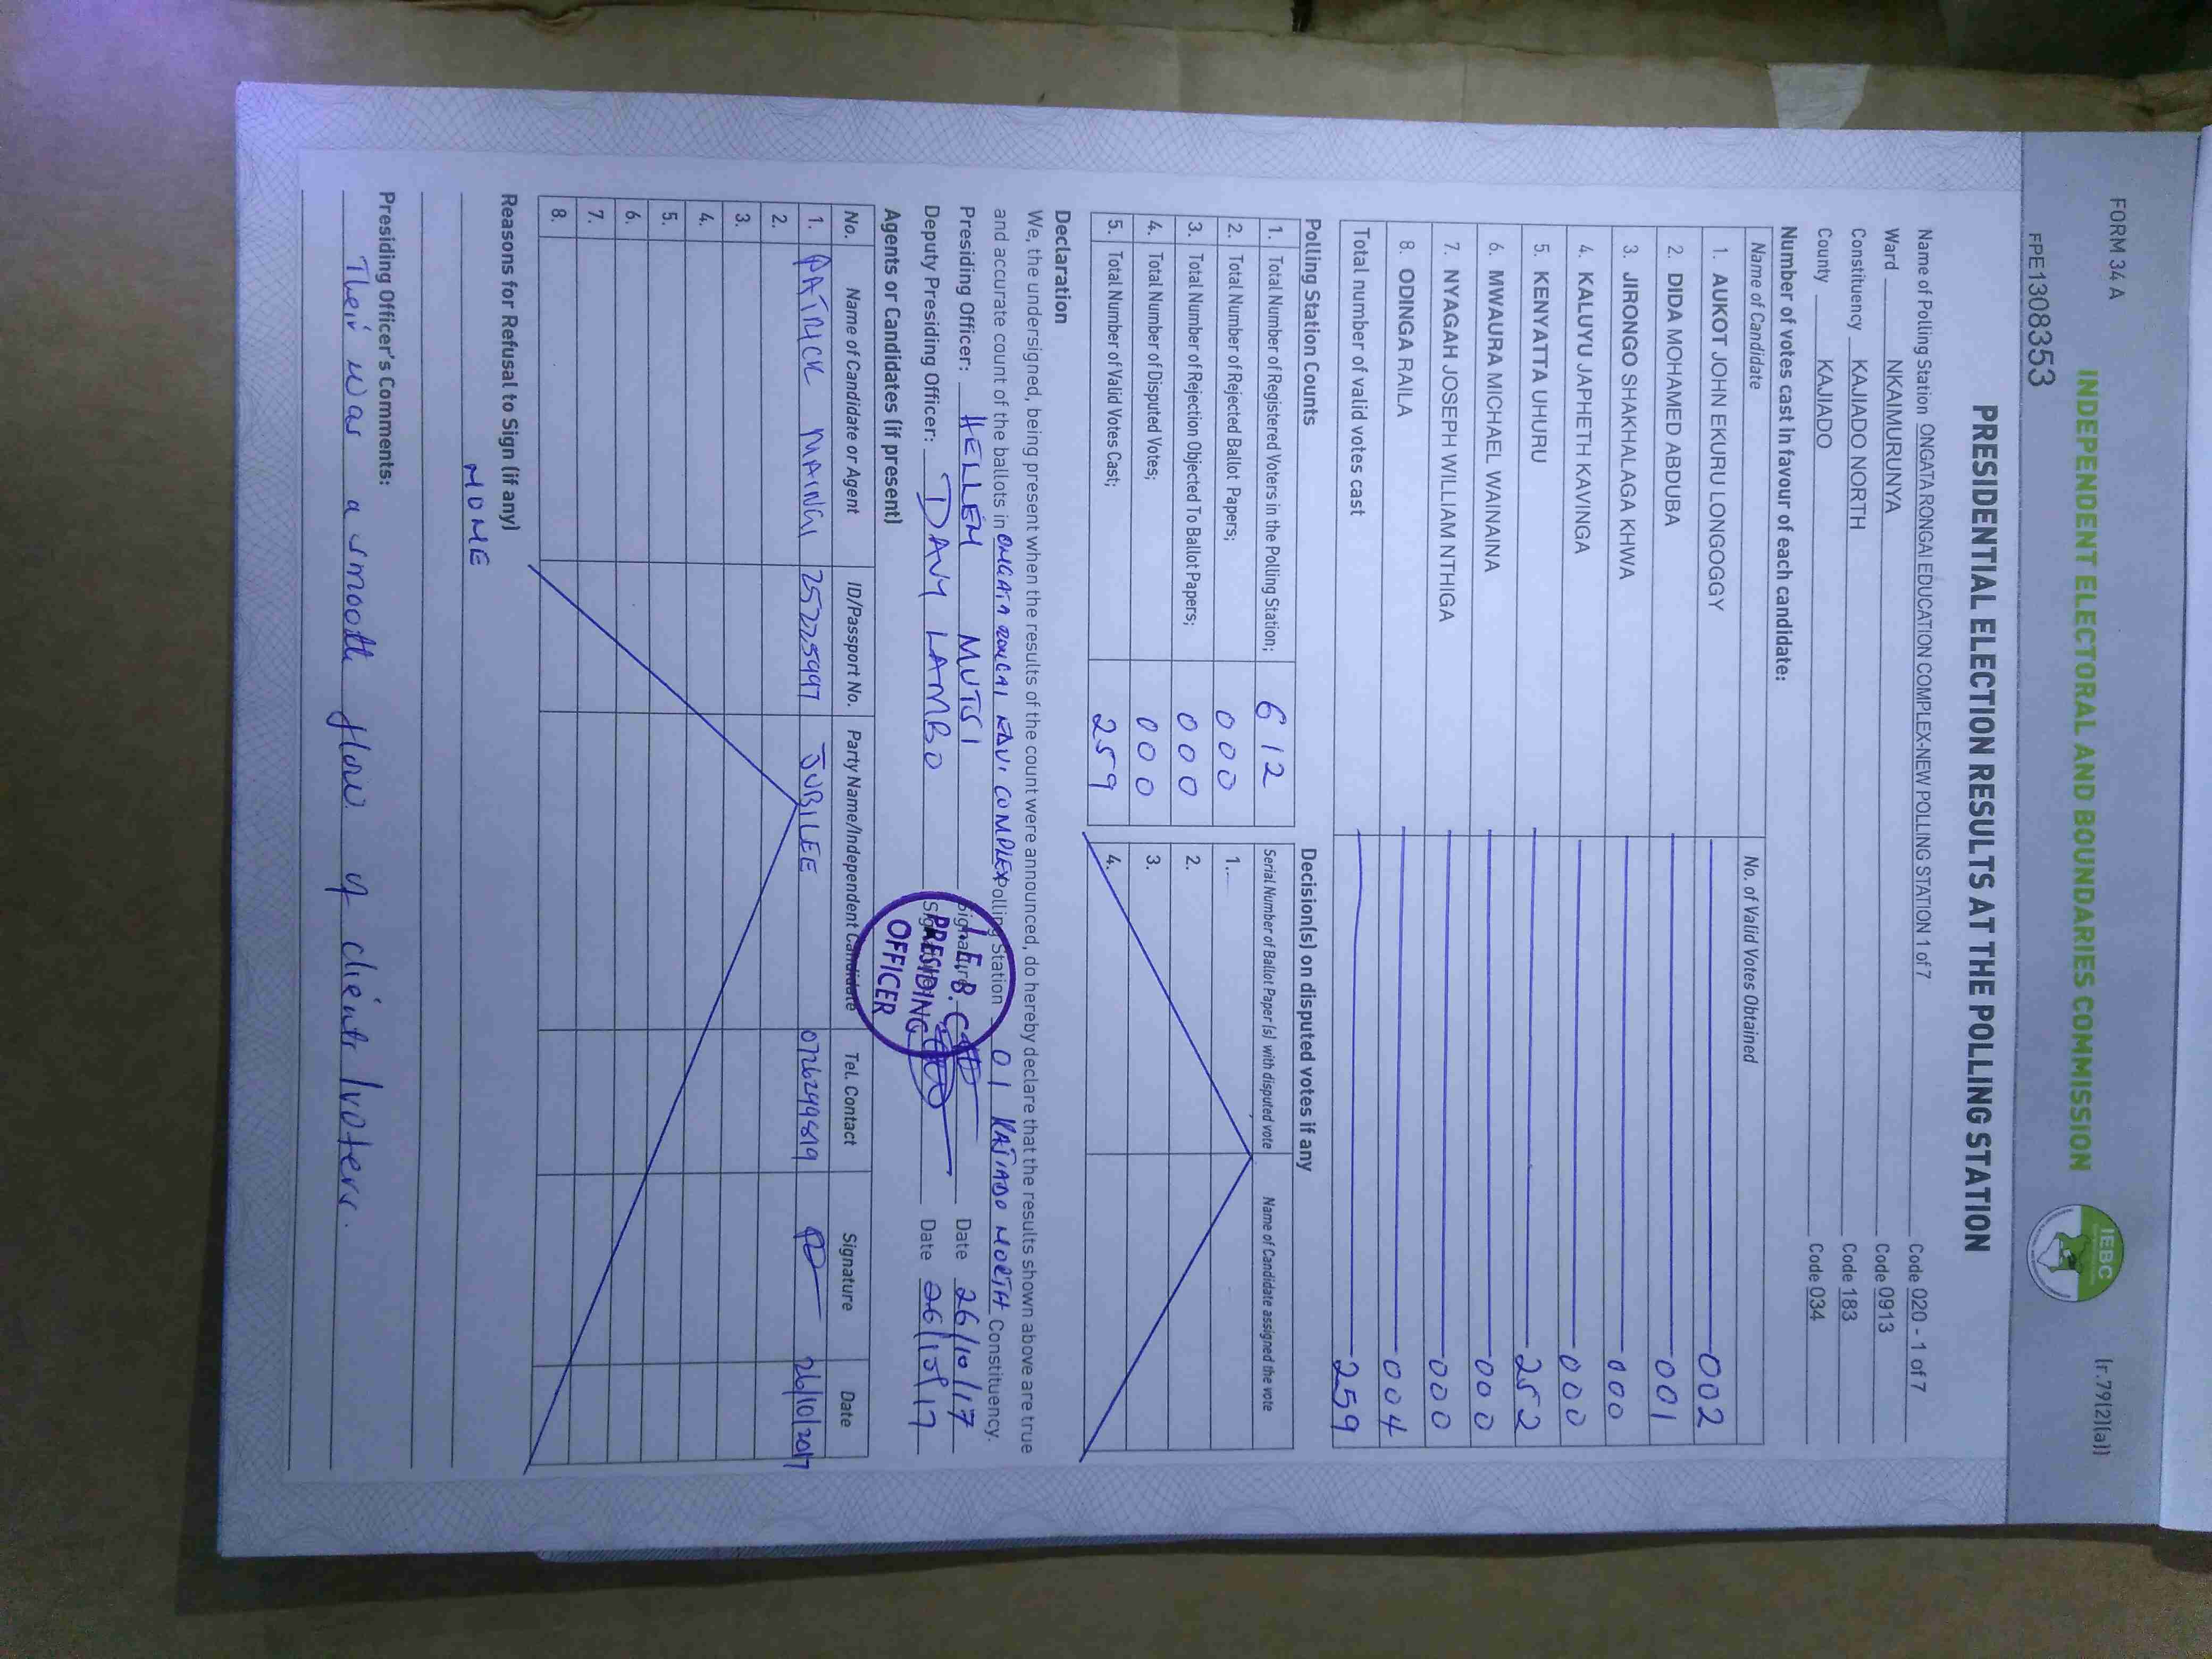 FORM 34 A
(r.79(2)(a))
INDEPENDENT ELECTORAL AND BOUNDARIES COMMISSION
IEBC
FPE1308353
PRESIDENTIAL ELECTION RESULTS AT THE POLLING STATION
Name of Polling Station ONGATA RONGAI EDUCATION COMPLEX-NEW POLLING STATION 1 of 7 Code 020 - 1 of 7
Ward NKAIMURUNYA Code 0913
Constituency KAJIADO NORTH Code 183
County KAJIADO Code 034
Number of votes cast in favour of each candidate:
Name of Candidate No. of Valid Votes Obtained
1. AUKOT JOHN EKURU LONGOGGY 002
2. DIDA MOHAMED ABDUBA 001
3. JIRONGO SHAKHALAGA KHWA 000
4. KALUYU JAPHETH KAVINGA 000
5. KENYATTA UHURU 252
6. MWAURA MICHAEL WAINAINA 000
7. NYAGAH JOSEPH WILLIAM NTHIGA 000
8. ODINGA RAILA 004
Total number of valid votes cast 259
Polling Station Counts
1. Total Number of Registered Voters in the Polling Station; 612
2. Total Number of Rejected Ballot Papers; 000
3. Total Number of Rejection Objected To Ballot Papers; 000
4. Total Number of Disputed Votes; 000
5. Total Number of Valid Votes Cast; 259
Decision(s) on disputed votes if any
Serial Number of Ballot Paper (s) with disputed vote Name of Candidate assigned the vote
1.
2.
3.
4.
Declaration
We, the undersigned, being present when the results of the count were announced, do hereby declare that the results shown above are true
and accurate count of the ballots in ONGATA RONGAI EDU. COMPLEX Polling Station 01 KAJIADO NORTH Constituency.
Presiding Officer: HELLEN MUTSI Signature Date 26/10/17
Deputy Presiding Officer: DAVY LAMBO Date 26/10/17
I.E.B.C
PRESIDING
OFFICER
Agents or Candidates (if present)
No. Name of Candidate or Agent ID/Passport No. Party Name/Independent Candidate Tel. Contact Signature Date
1. PATRICK MAINGI 25225997 JUBILEE 0726299819 26/10/2017
2.
3.
4.
5.
6.
7.
8.
Reasons for Refusal to Sign (if any)
NONE
Presiding Officer's Comments:
Their was a smooth flow of clients/voters.